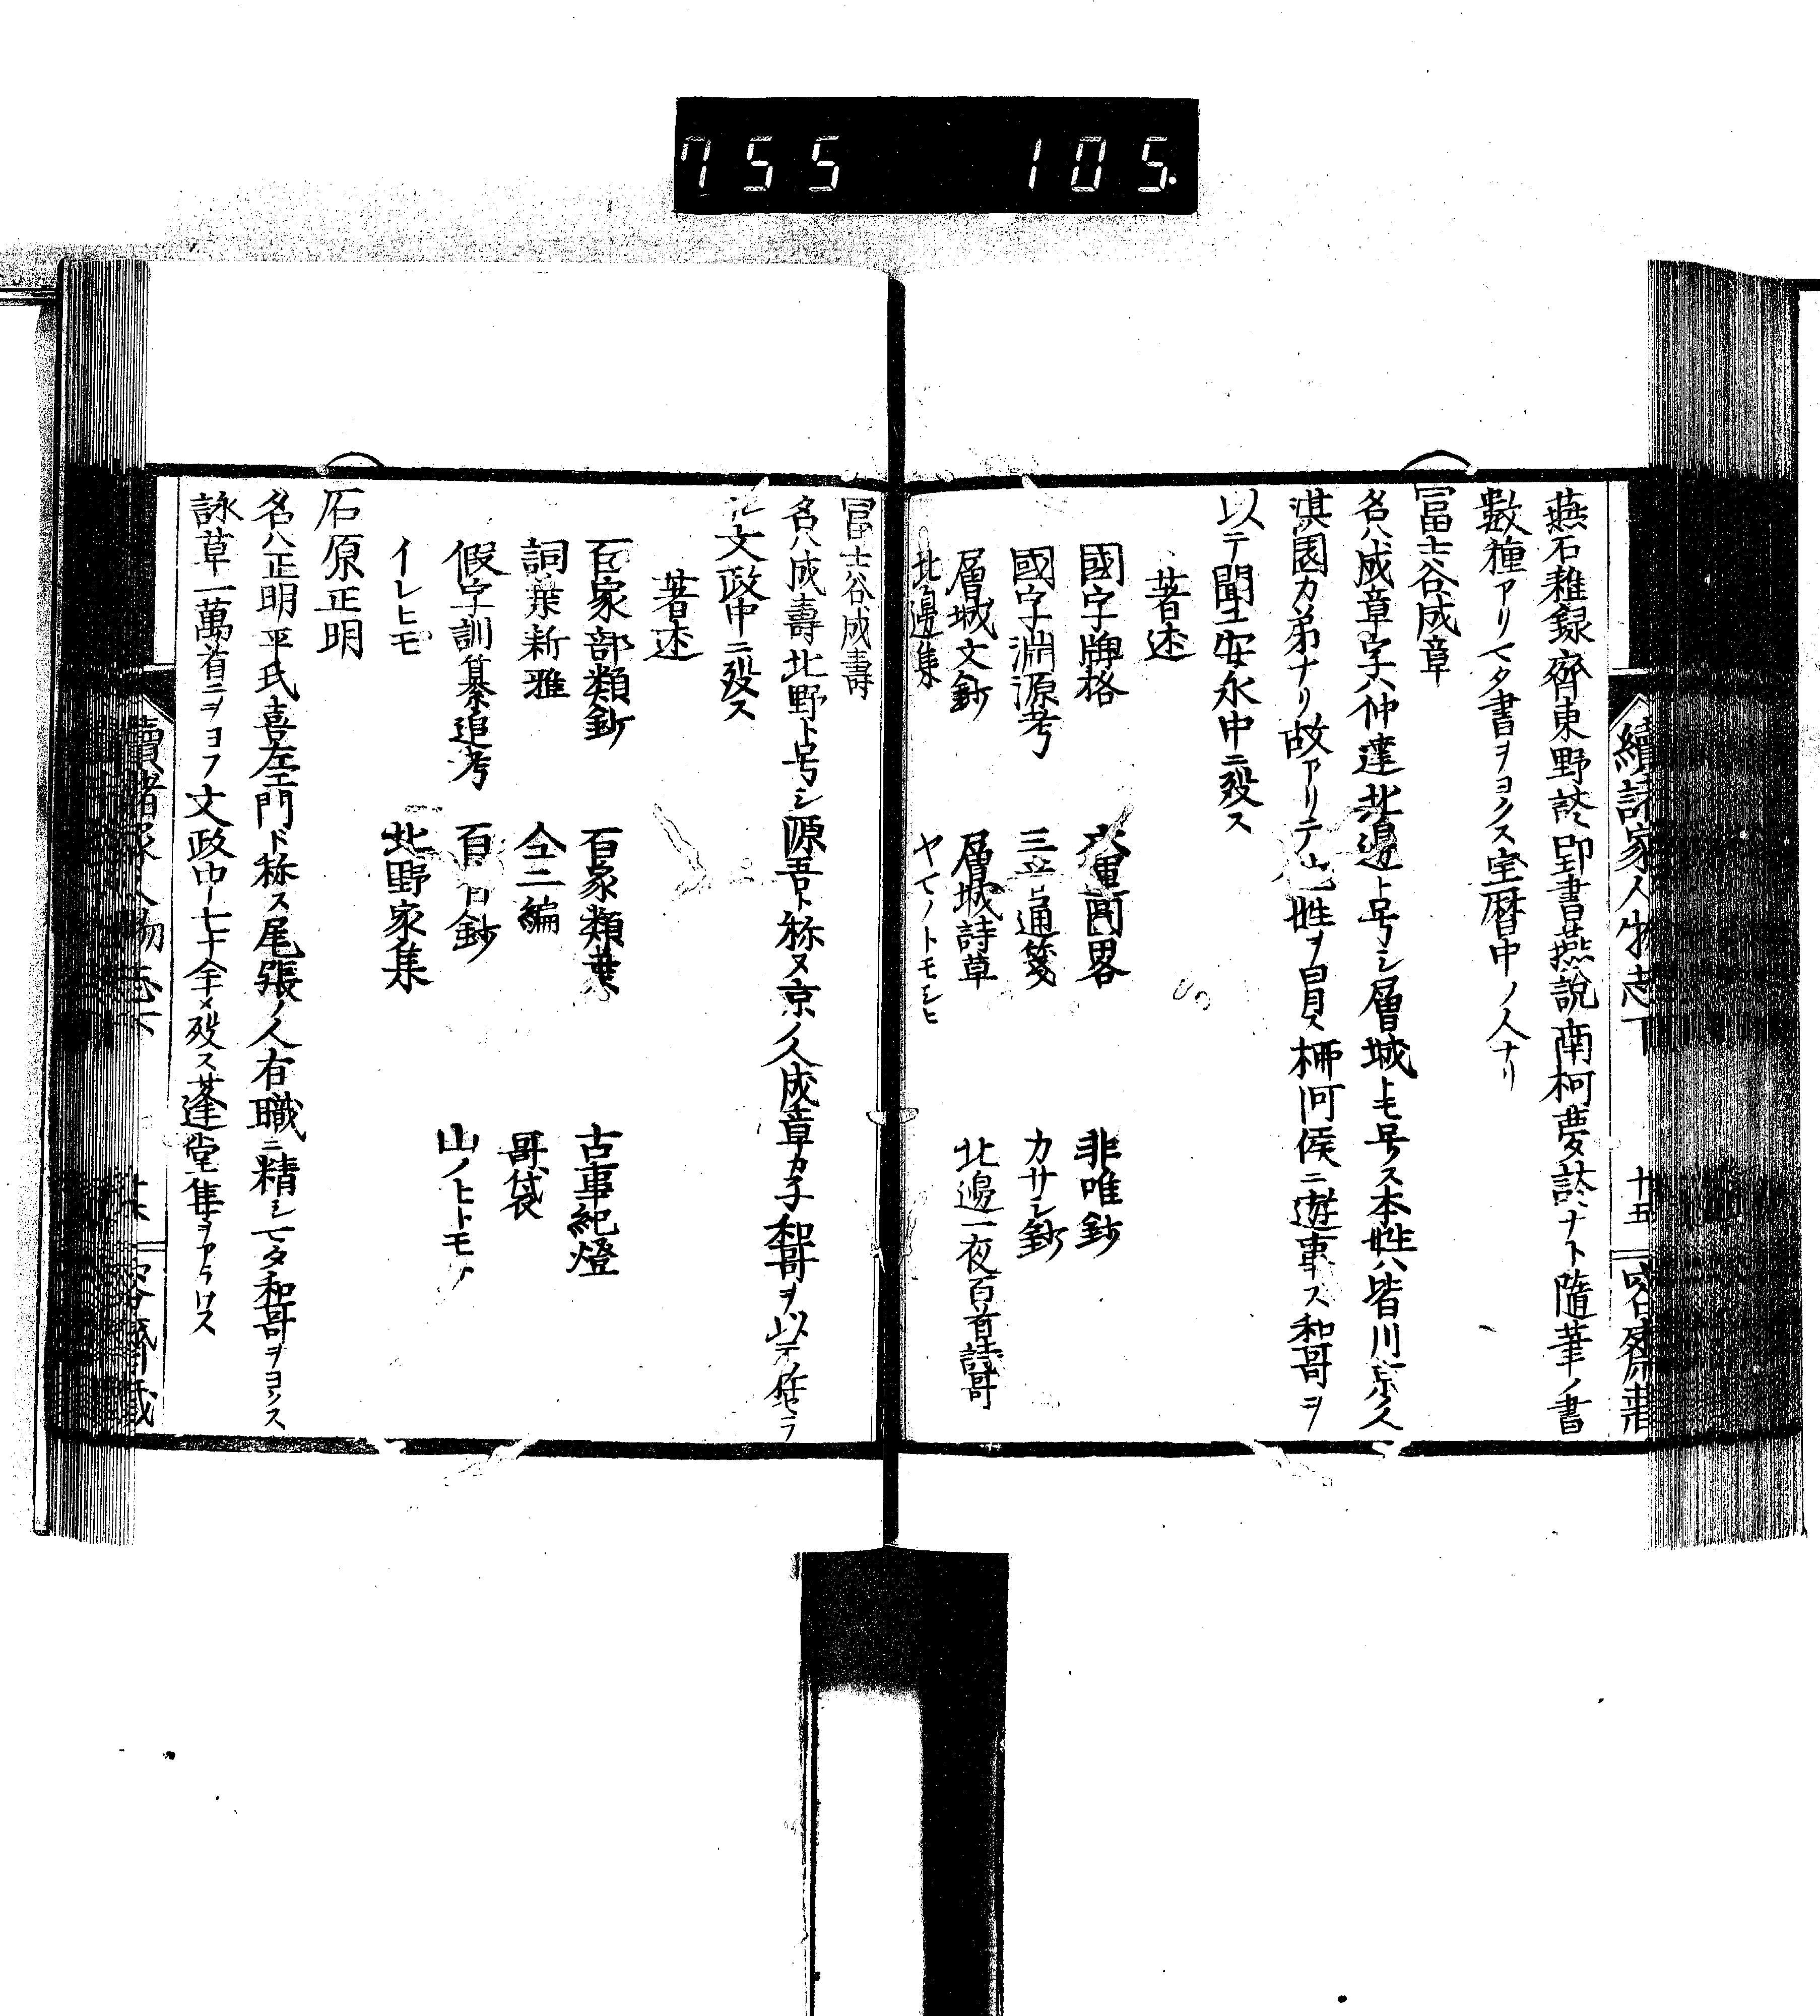 755 105.
續諸家人物志下 廿五
燕石雜録齊東野談郢書燕說南柯夢談ナト隨筆ノ書
數種アリマタ書ヲヨクス宝暦中ノ人ナリ
冨士谷成章
名ハ成章字ハ仲達北邊ト号シ層城トモ号ス本姓ハ皆川京ノ人
淇園カ弟ナリ故アリテ此姓ヲ冒ス柳河侯ニ遊事ス和哥ヲ
以テ聞エ安永中ニ殁ス
著述
國字牌格 六運畧 非唯鈔
國字淵源考 通箋 カサシ鈔
層城文鈔 層城詩草 北邊一夜百首詩哥
北邊集
冨士谷成壽
名ハ成壽北野ト号シ源吾ト称ス京ノ人成章カ子和哥ヲ以テ
文政中ニ殁ス
著述
百家部類鈔 百家類葉 古事紀燈
詞葉新雅 仝二編 哥袋
假字訓纂追考 百鈔 山ノヒトモ
イレヒモ 北野家集
石原正明
名ハ正明平氏喜左エ門ト称ス尾張ノ人有職ニ精シマタ和哥ヲヨクス
詠草一萬首ニヲヨフ文政中七十余メ殁ス蓬堂集ヲアラハス
續諸家人物志下